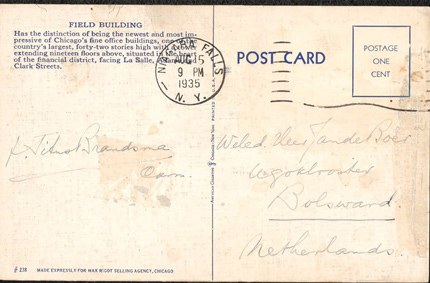 FIELD BUILDING
Has the distinction of being the newest and most im-
pressive of Chicago's fine office buildings, one of the
country's largest, forty-two stories high with a tower
extending nineteen floors above, situated in the heart
of the financial district, facing La Salle, Adams and
Clark Streets.
POST CARD
PLACE
POSTAGE
ONE
CENT
NIAGARA FALLS
AUG 5
9 PM
1935
N. Y.
Titus Brandsma
Carm.
Weled. Heer J. van de Boer
Ugoklooster
Bolsward.
Netherlands.
# 238 MADE EXPRESSLY FOR MAX RIGOT SELLING AGENCY, CHICAGO